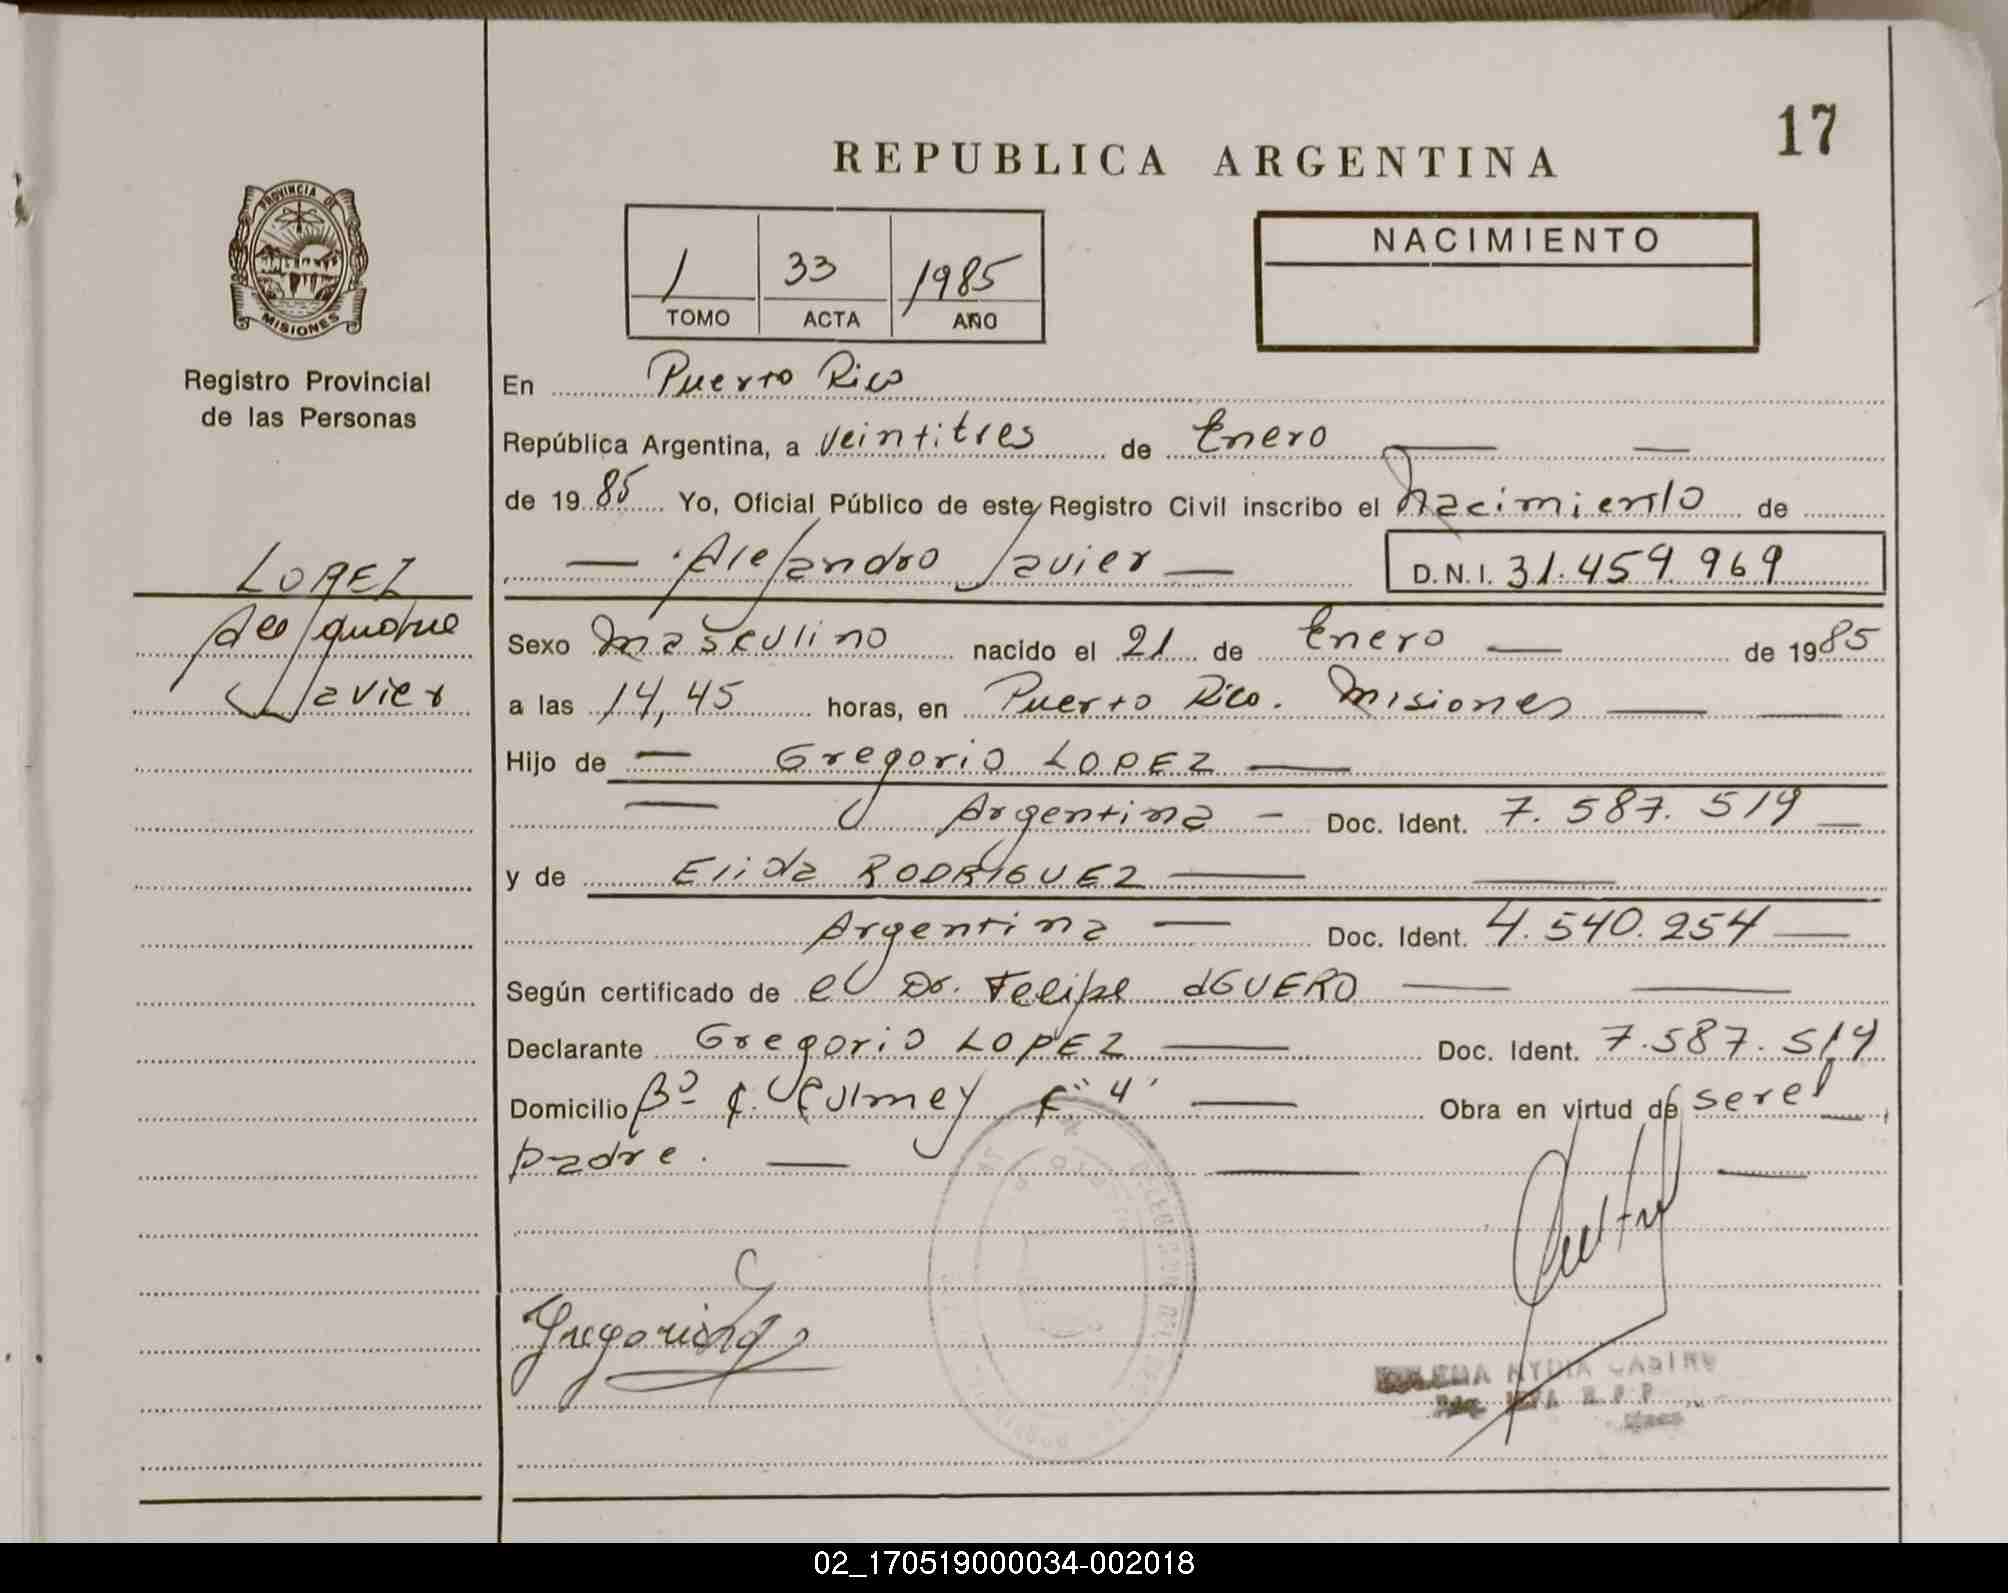 17
REPUBLICA ARGENTINA
PROVINCIA DE
MISIONES
1 33 1985
TOMO ACTA AÑO
NACIMIENTO
Registro Provincial
de las Personas
En Puerto Rico
República Argentina, a veintitres de Enero
de 1985 Yo, Oficial Público de este Registro Civil inscribo el Nacimiento de
Alejandro Javier D.N.I. 31.459.969
LOPEZ
Alejandro
Javier
Sexo Masculino nacido el 21 de Enero de 1985
a las 14,45 horas, en Puerto Rico. Misiones
Hijo de Gregorio LOPEZ
Argentina Doc. Ident. 7.587.519
y de Elida RODRIGUEZ
Argentina Doc. Ident. 4.540.254
Según certificado de el Dr. Felipe AGUERO
Declarante Gregorio LOPEZ Doc. Ident. 7.587.519
Domicilio Bº C. Culmey C "4" Obra en virtud de ser el
padre.
NYDIA CASTRO
02_170519000034-002018